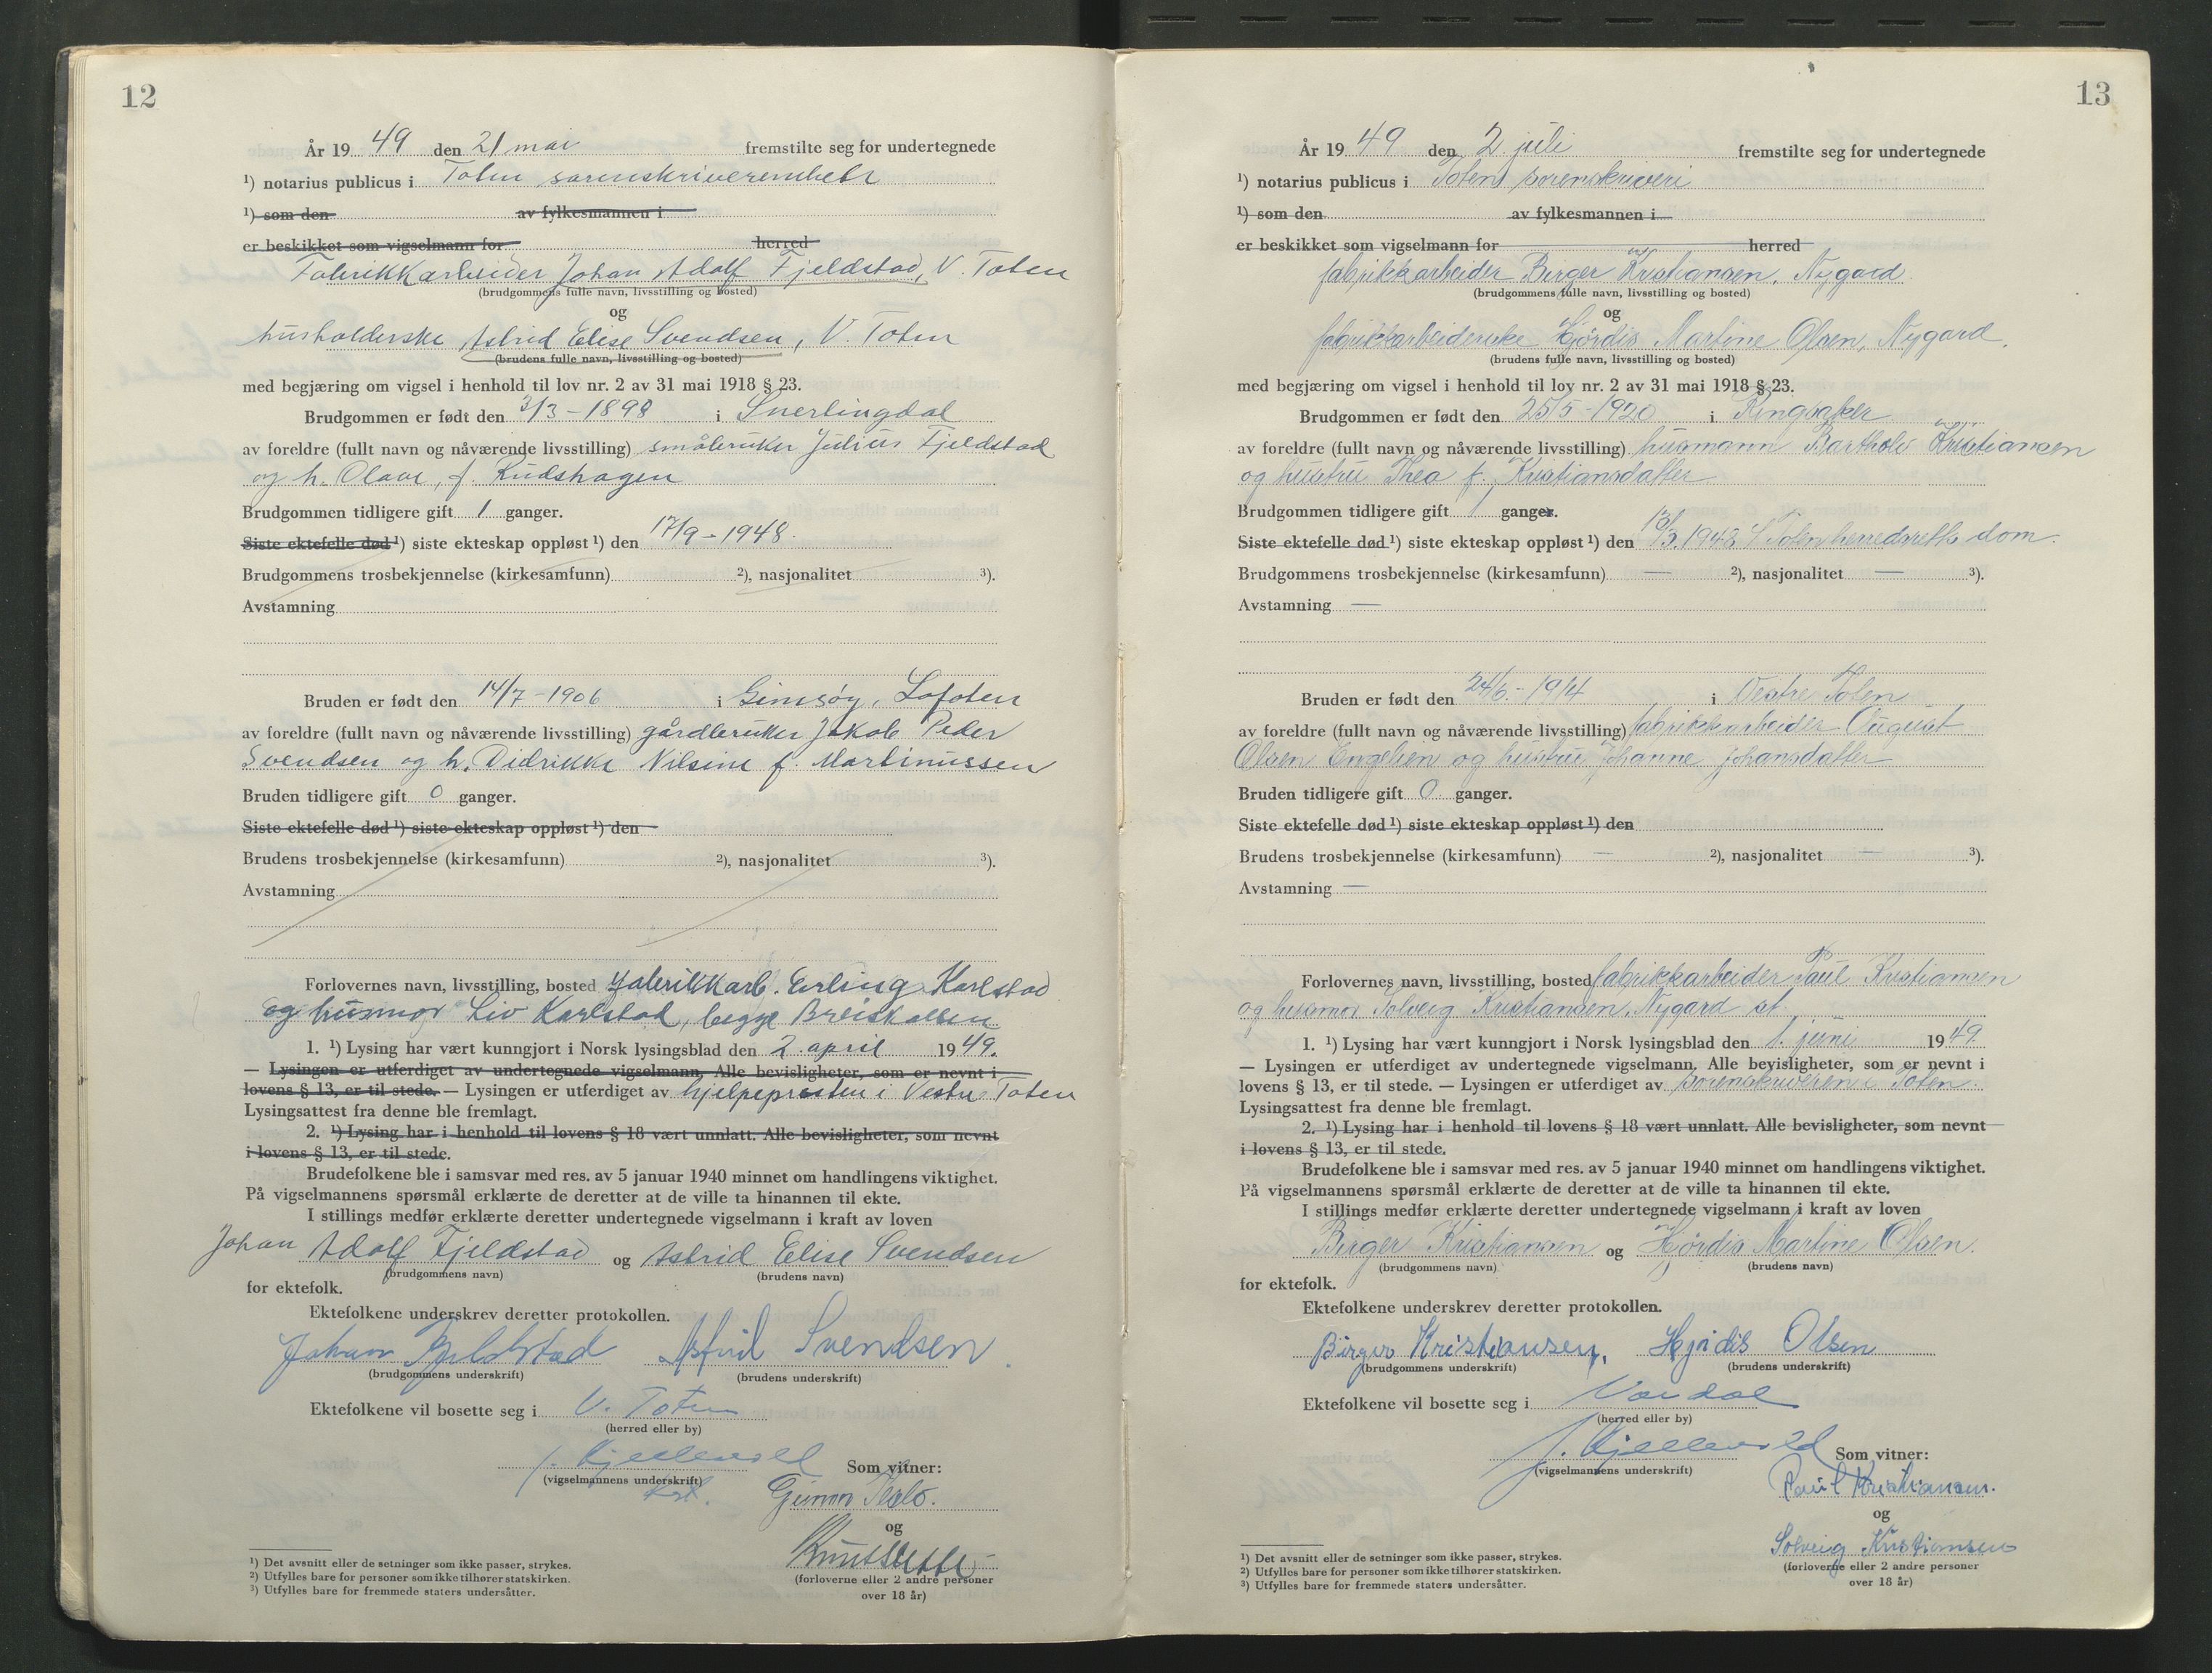 12
År 19 49 den 21 mai fremstilte seg for undertegnede
¹) notarius publicus i Toten sorenskriverembete
¹) som den av fylkesmannen i
er beskikket som vigselmann for herred
Fabrikkarbeider Johan Adolf Fjeldstad, V. Toten
(brudgommens fulle navn, livsstilling og bosted)
og
husholderske Astrid Elise Svendsen, V. Toten
(brudens fulle navn, livsstilling og bosted)
med begjæring om vigsel i henhold til lov nr. 2 av 31 mai 1918 § 23.
Brudgommen er født den 3/3 - 1898 i Snertingdal
av foreldre (fullt navn og nåværende livsstilling) småbruker Julius Fjeldstad
og h. Olave, f. Rudshagen
Brudgommen tidligere gift 1 ganger.
Siste ektefelle død ¹) siste ekteskap oppløst ¹) den 17/9 - 1948.
Brudgommens trosbekjennelse (kirkesamfunn) ²), nasjonalitet ³).
Avstamning
Bruden er født den 14/7 - 1906 i Gimsøy, Lofoten
av foreldre (fullt navn og nåværende livsstilling) gårdbruker Jakob Peder
Svendsen og h. Didrikke Nilsine f. Martinussen
Bruden tidligere gift 0 ganger.
Siste ektefelle død ¹) siste ekteskap oppløst ¹) den
Brudens trosbekjennelse (kirkesamfunn) ²), nasjonalitet ³).
Avstamning
Forlovernes navn, livsstilling, bosted Fabrikkarb. Erling Karlstad
og husmor Liv Karlstad, begge Breiskallen
1. ¹) Lysing har vært kunngjort i Norsk lysingsblad den 2. april 19 49.
— Lysingen er utferdiget av undertegnede vigselmann, Alle bevisligheter, som er nevnt i
lovens § 13, er til stede. — Lysingen er utferdiget av hjelpepresten i Vestre Toten
Lysingsattest fra denne ble fremlagt.
2. ¹) Lysing har i henhold til lovens § 18 vært unnlatt. Alle bevisligheter, som nevnt
i lovens § 13, er til stede.
Brudefolkene ble i samsvar med res. av 5 januar 1940 minnet om handlingens viktighet.
På vigselmannens spørsmål erklærte de deretter at de ville ta hinannen til ekte.
I stillings medfør erklærte deretter undertegnede vigselmann i kraft av loven
Johan Adolf Fjeldstad og Astrid Elise Svendsen
(brudgommens navn) (brudens navn)
for ektefolk.
Ektefolkene underskrev deretter protokollen.
Johan Fjeldstad Astrid Svendsen.
(brudgommens underskrift) (brudens underskrift)
Ektefolkene vil bosette seg i V. Toten
(herred eller by)
J. Kjellevold Som vitner:
(vigselmannens underskrift)
Gunnar
og
(forloverne eller 2 andre personer
over 18 år)
¹) Det avsnitt eller de setninger som ikke passer, strykes.
²) Utfylles bare for personer som ikke tilhører statskirken.
³) Utfylles bare for fremmede staters undersåtter.
13
År 19 49 den 2 juli fremstilte seg for undertegnede
¹) notarius publicus i Toten sorenskriveri
¹) som den av fylkesmannen i
er beskikket som vigselmann for herred
fabrikkarbeider Birger Kristiansen, Nygard
(brudgommens fulle navn, livsstilling og bosted)
og
fabrikkarbeiderske Hjördis Martine Olsen, Nygard.
(brudens fulle navn, livsstilling og bosted)
med begjæring om vigsel i henhold til lov nr. 2 av 31 mai 1918 § 23.
Brudgommen er født den 25/5 - 1920 i Ringsaker
av foreldre (fullt navn og nåværende livsstilling) husmann Barthold Kristiansen
og hustru Thea f. Kristiansdatter
Brudgommen tidligere gift 1 ganger.
Siste ektefelle død ¹) siste ekteskap oppløst ¹) den 13/3.1948 Toten herredsretts dom.
Brudgommens trosbekjennelse (kirkesamfunn) — ²), nasjonalitet — ³).
Avstamning —
Bruden er født den 24/6. - 1914 i Vestre Toten
av foreldre (fullt navn og nåværende livsstilling) fabrikkarbeider August
Olsen Engelien og hustru Johanne Johansdatter
Bruden tidligere gift 0 ganger.
Siste ektefelle død ¹) siste ekteskap oppløst ¹) den
Brudens trosbekjennelse (kirkesamfunn) — ²), nasjonalitet — ³).
Avstamning —
Forlovernes navn, livsstilling, bosted fabrikkarbeider Paul Kristiansen
og husmor Solveig Kristiansen, Nygard st.
1. ¹) Lysing har vært kunngjort i Norsk lysingsblad den 1. juni 19 49
— Lysingen er utferdiget av undertegnede vigselmann. Alle bevisligheter, som er nevnt i
lovens § 13, er til stede. — Lysingen er utferdiget av sorenskriveren i Toten.
Lysingsattest fra denne ble fremlagt.
2. ¹) Lysing har i henhold til lovens § 18 vært unnlatt. Alle bevisligheter, som nevnt
i lovens § 13, er til stede.
Brudefolkene ble i samsvar med res. av 5 januar 1940 minnet om handlingens viktighet.
På vigselmannens spørsmål erklærte de deretter at de ville ta hinannen til ekte.
I stillings medfør erklærte deretter undertegnede vigselmann i kraft av loven
Birger Kristiansen og Hjördis Martine Olsen.
(brudgommens navn) (brudens navn)
for ektefolk.
Ektefolkene underskrev deretter protokollen.
Birger Kristiansen, Hjördis Olsen
(brudgommens underskrift) (brudens underskrift)
Ektefolkene vil bosette seg i Vardal
(herred eller by)
J. Kjellevold Som vitner:
(vigselmannens underskrift)
Paul Kristiansen.
og
Solveig Kristiansen
(forloverne eller 2 andre personer
over 18 år)
¹) Det avsnitt eller de setninger som ikke passer, strykes.
²) Utfylles bare for personer som ikke tilhører statskirken.
³) Utfylles bare for fremmede staters undersåtter.